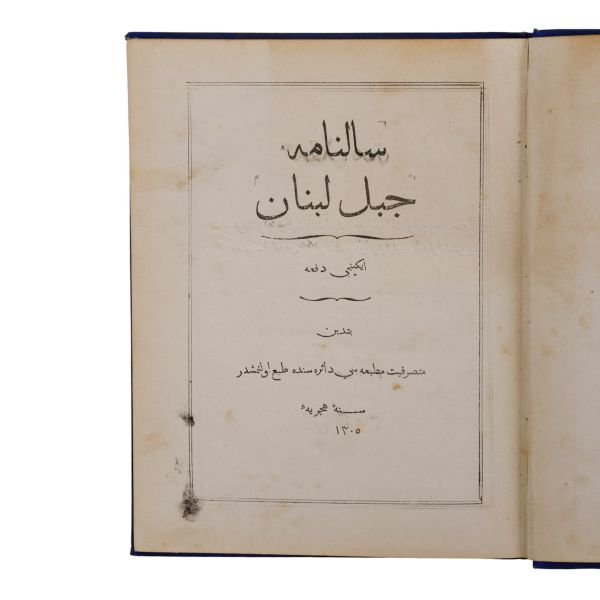 سالنامهٔ
جبل لبنان
ایكنجی دفعه
بتدین
متصرفیت مطبعه سی دائره سنده طبع اولنمشدر
سنهٔ هجریه
١٣٠٥